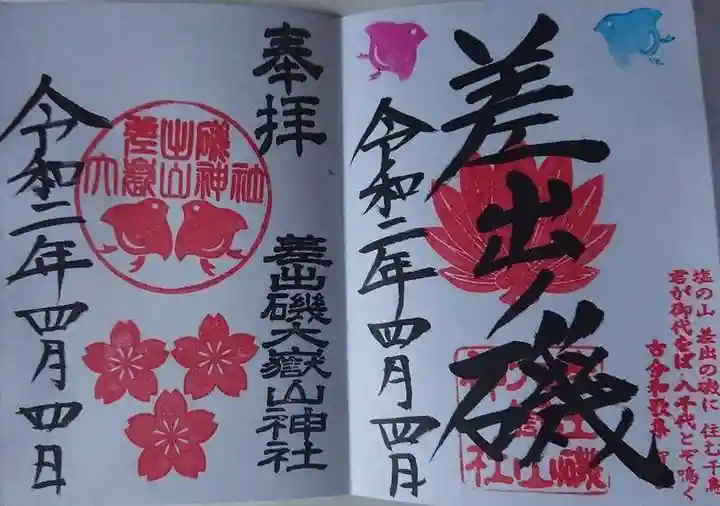 塩の山 差出の磯に 住む千鳥
君が御代をば 八千代とぞ鳴く
古今和歌集
差出ノ磯
令和二年四月四日
奉拝
差出磯大嶽山神社
差出磯
大嶽山神社
令和二年四月四日